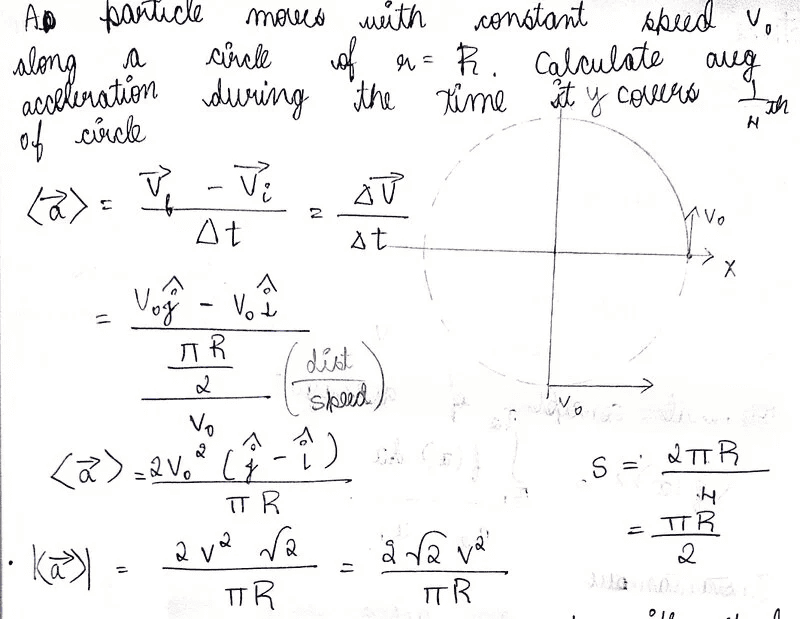 A particle moves with constant speed V₀
along a circle of r = R. Calculate avg
acceleration during the time it covers 1/4 th
of circle
y
⟨a⃗⟩ = (V⃗f − V⃗i)/Δt = ΔV⃗/Δt
V₀
X
= (V₀ĵ − V₀î)/((πR/2)/V₀) (dist/speed)
V₀
⟨a⃗⟩ = 2V₀²(ĵ − î)/πR
S = 2πR/4
= πR/2
|⟨a⃗⟩| = 2V²√2/πR = 2√2V²/πR